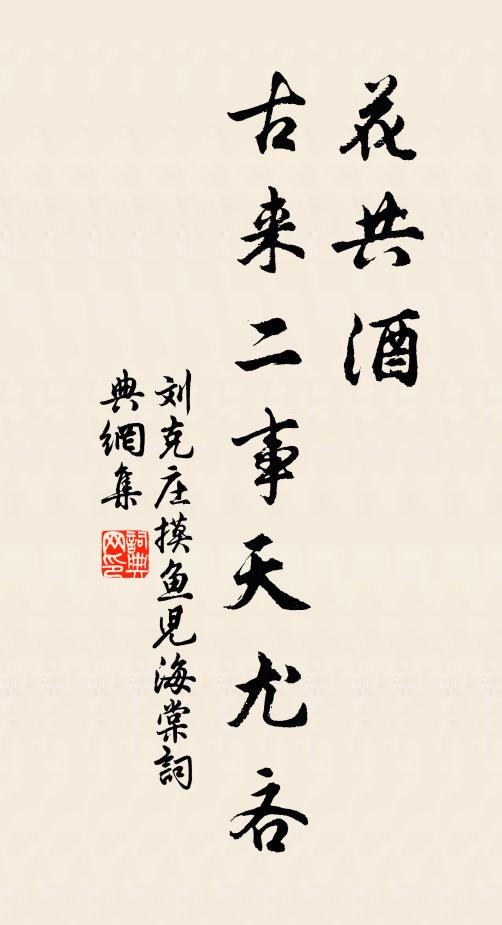 花共酒
古来二事天尤吝
刘克庄摸鱼児海棠詞
典網集
詞典网印